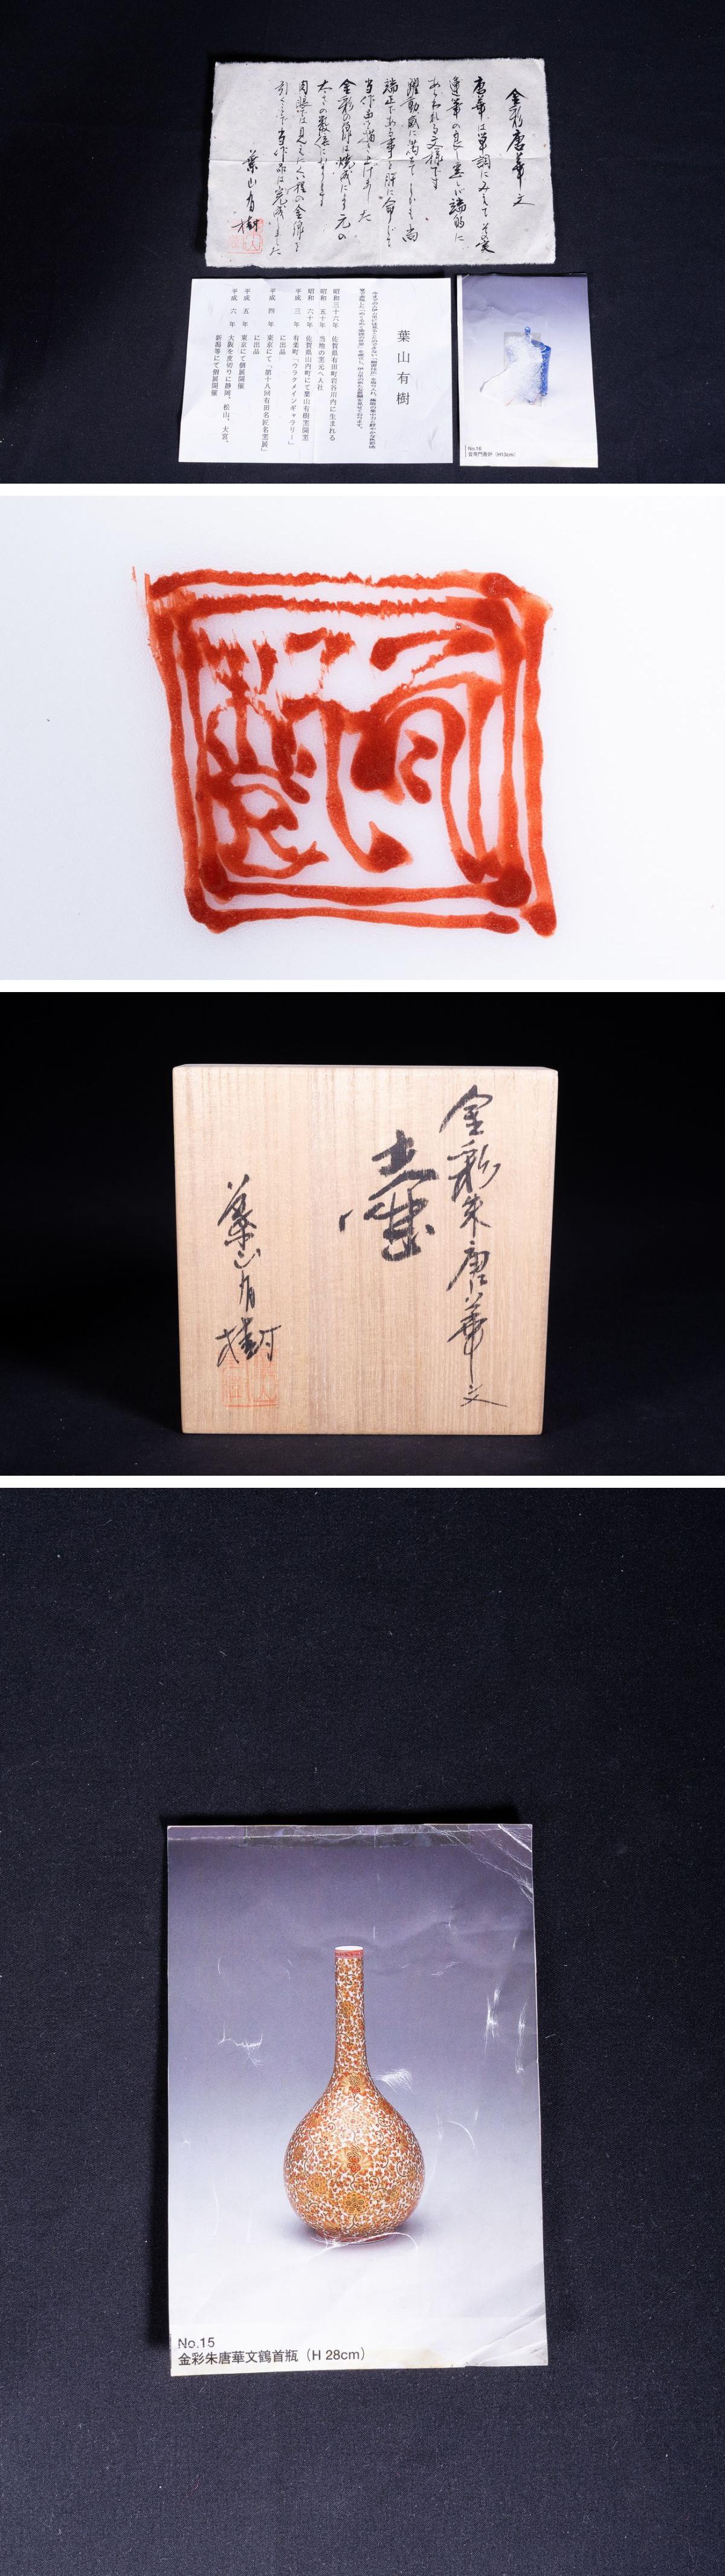 金彩唐華文
唐華は単調にみえて その実
運筆の良し悪しが端的に
あらわれる文様です
躍動感に満ちて しかも尚
端正である事を肝に命じて
当作品は描き上げました
金彩の線は焼成により元の
太さの数倍になります
肉眼では見えにくい程の金線を
引くことで当作品は完成しました
葉山有樹
葉山有樹
昭和三十六年 佐賀県有田町岩谷川内に生まれる
昭和 五十年 当地の窯元へ入社
昭和 六十年 佐賀県山内町にて葉山有樹窯開窯
平成 三 年 有楽町「ウラクメインギャラリー」
に出品
平成 四 年 東京にて「第十八回有田名匠名窯展」
に出品
平成 五 年 東京にて個展開催
平成 六 年 大阪を皮切りに静岡、松山、大宮、
新潟等にて個展開催
No.16
有樹
金彩朱唐華文
壷
葉山有樹
No.15
金彩朱唐華文鶴首瓶（H 28cm）